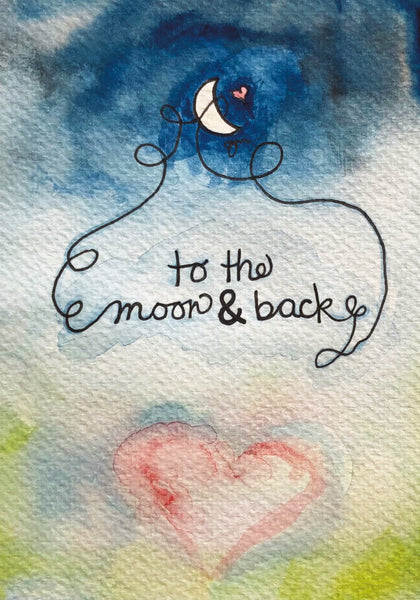 to the
moon & back